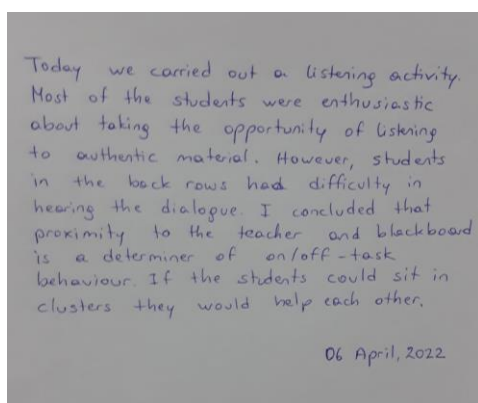 Today we carried out a listening activity.
Most of the students were enthusiastic
about taking the opportunity of listening
to authentic material. However, students
in the back rows had difficulty in
hearing the dialogue. I concluded that
proximity to the teacher and blackboard
is a determiner of on/off-task
behaviour. If the students could sit in
clusters they would help each other.
06 April, 2022